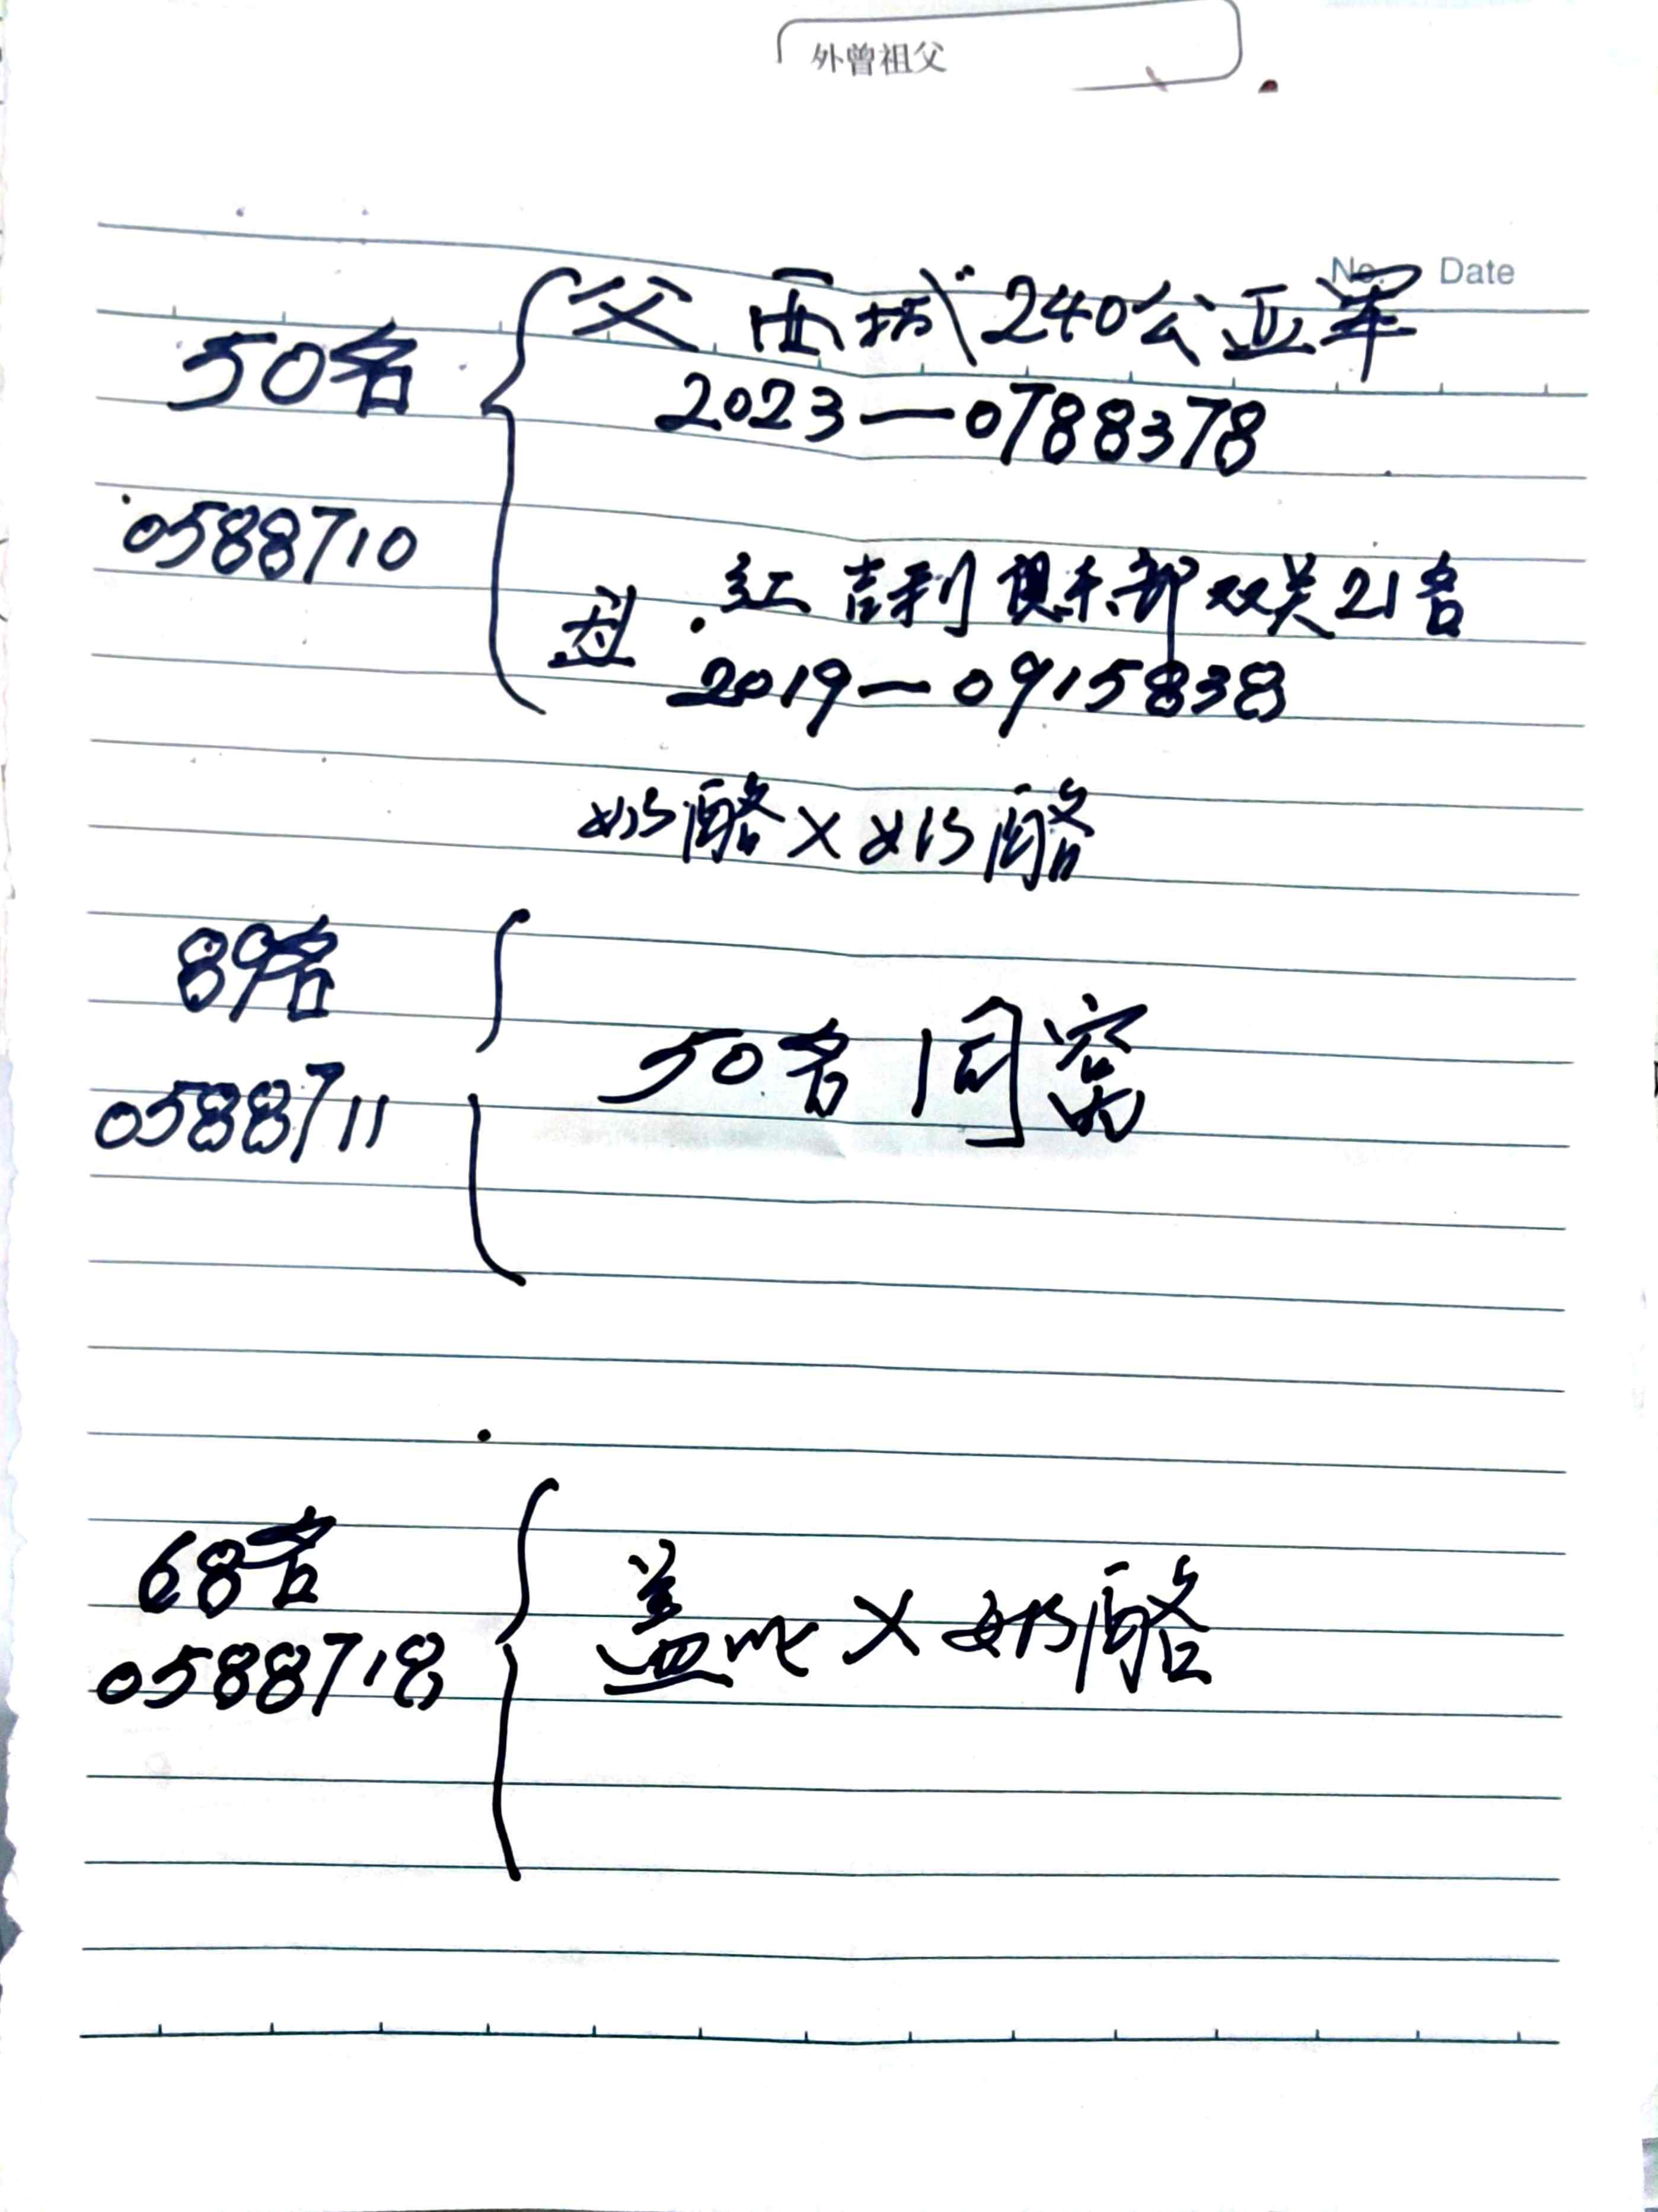 外曾祖父
No. Date
父 西城 240公亚军
50名
2023—0788378
0588710
母 红吉利俱乐部双关21名
2019—0915838
奶酪×奶酪
89名
50名同窝
0588711
68名
盖比×奶酪
0588718